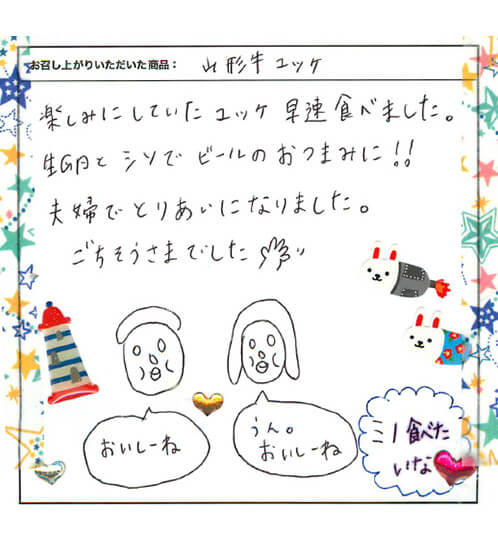 お召し上がりいただいた商品： 山形牛ユッケ
楽しみにしていたユッケ早速食べました。
生卵とシソでビールのおつまみに!!
夫婦でとりあいになりました。
ごちそうさまでした
おいしーね
うん。
おいしーね
食べた
いな